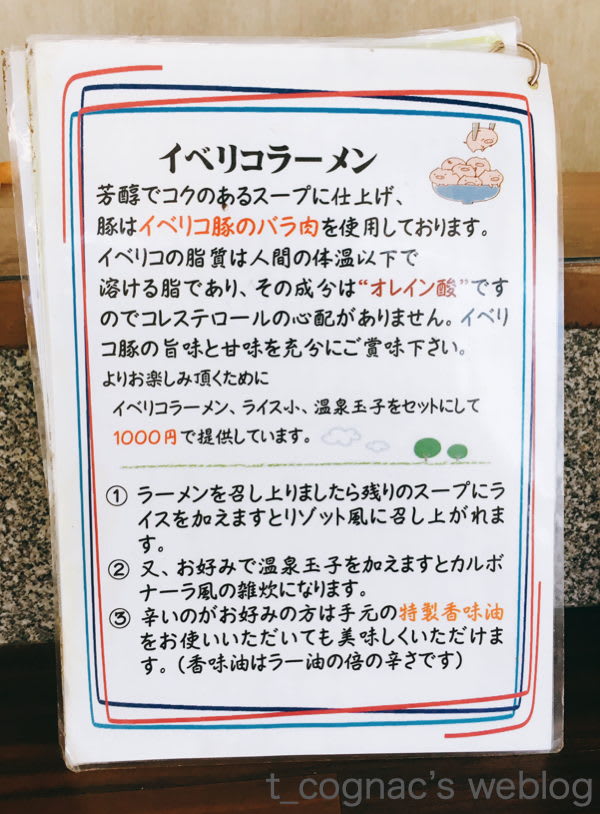 イベリコラーメン
芳醇でコクのあるスープに仕上げ、
豚はイベリコ豚のバラ肉を使用しております。
イベリコの脂質は人間の体温以下で
溶ける脂であり、その成分は“オレイン酸”です
のでコレステロールの心配がありません。イベリ
コ豚の旨味と甘味を充分にご賞味下さい。
よりお楽しみ頂くために
イベリコラーメン、ライス小、温泉玉子をセットにして
1000円で提供しています。
① ラーメンを召し上りましたら残りのスープにラ
イスを加えますとリゾット風に召し上がれま
す。
② 又、お好みで温泉玉子を加えますとカルボ
ナーラ風の雑炊になります。
③ 辛いのがお好みの方は手元の特製香味油
をお使いいただいても美味しくいただけま
す。(香味油はラー油の倍の辛さです)
t_cognac's weblog